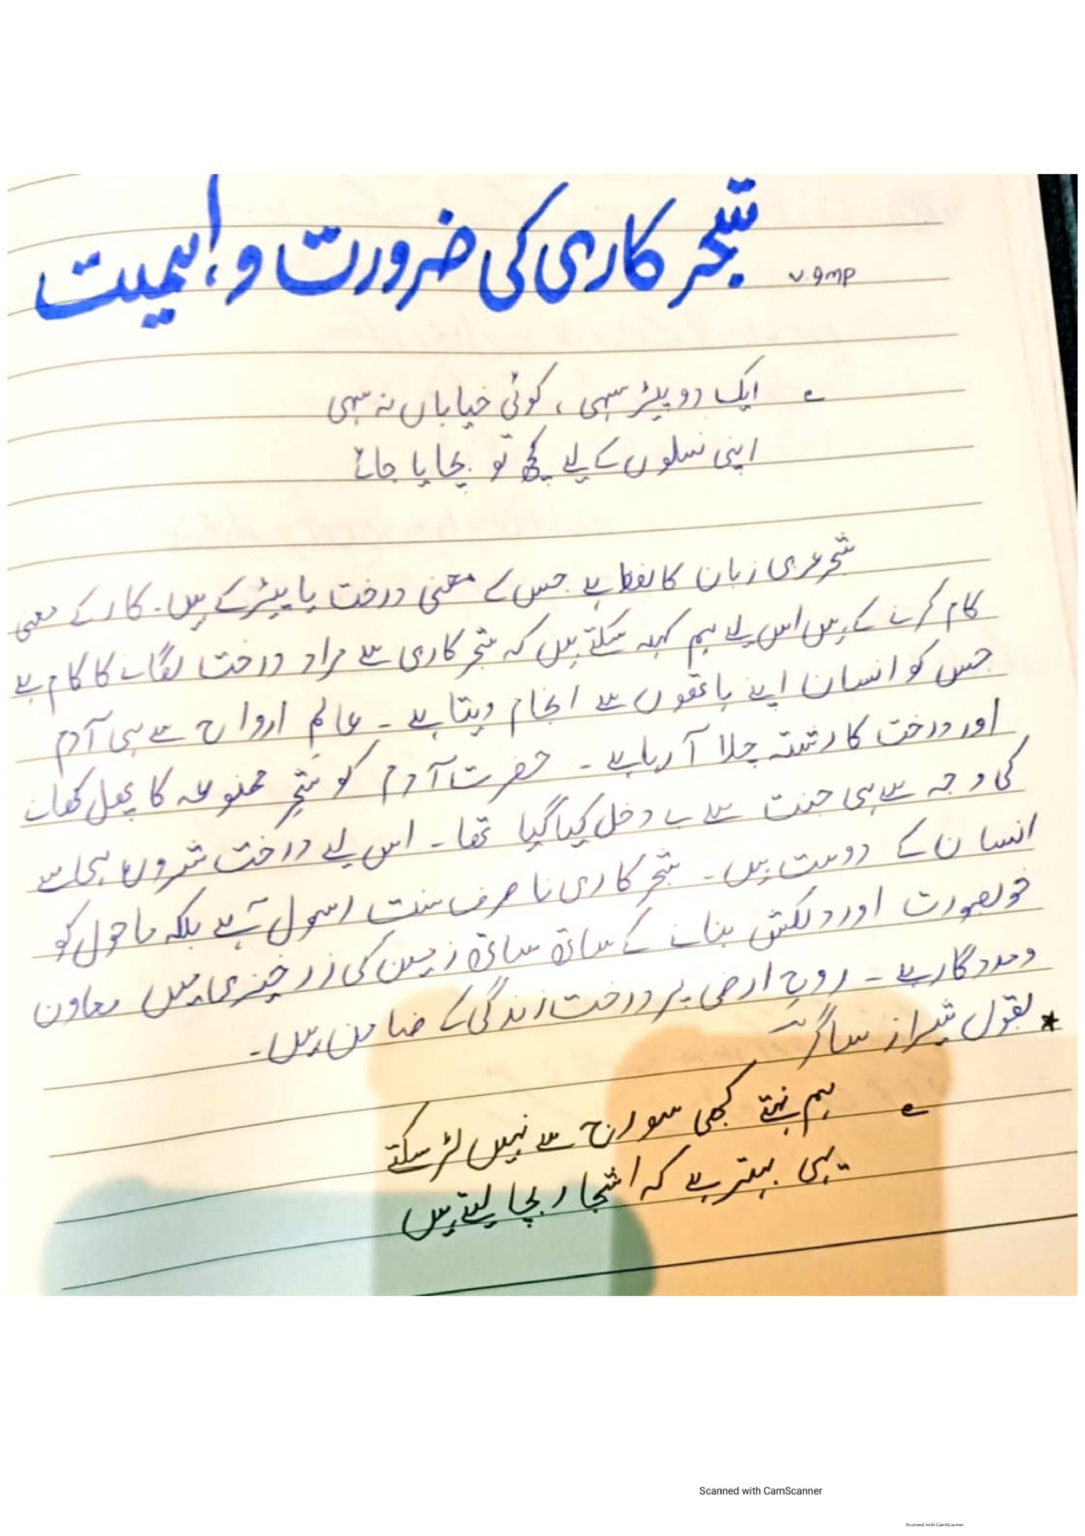 شجر کاری کی ضرورت و اہمیت
v.gmp
؎ ایک دو پیڑ سہی ، کوئی خیاباں نہ سہی
اپنی نسلوں کے لیے کچھ تو بچایا جائے
شجر عربی زبان کا لفظ ہے جس کے معنی درخت یا پیڑ کے ہیں۔ کار کے معنی
کام کرنے کے ہیں اس لیے ہم کہہ سکتے ہیں کہ شجر کاری سے مراد درخت لگانے کا کام ہے
جس کو انسان اپنے ہاتھوں سے انجام دیتا ہے ۔ عالم ارواح سے ہی آدم
اور درخت کا رشتہ چلا آ رہا ہے ۔ حضرت آدم کو شجرِ ممنوعہ کا پھل کھانے
کی وجہ سے ہی جنت سے بے دخل کیا گیا تھا ۔ اس لیے درخت شروع ہی سے
انسان کے دوست ہیں ۔ شجر کاری نا صرف سنت رسول ہے بلکہ ماحول کو
خوبصورت اور دلکش بنانے کے ساتھ ساتھ زمین کی زرخیزی میں معاون
ومددگار ہے ۔ روحِ ارضی پر درخت زندگی کے ضامن ہیں ۔
* بقول شیراز ساگر
؎ ہم نہتے کبھی سورج سے نہیں لڑ سکتے
یہی بہتر ہے کہ اشجار بچا لیتے ہیں
Scanned with CamScanner
Scanned with CamScanner